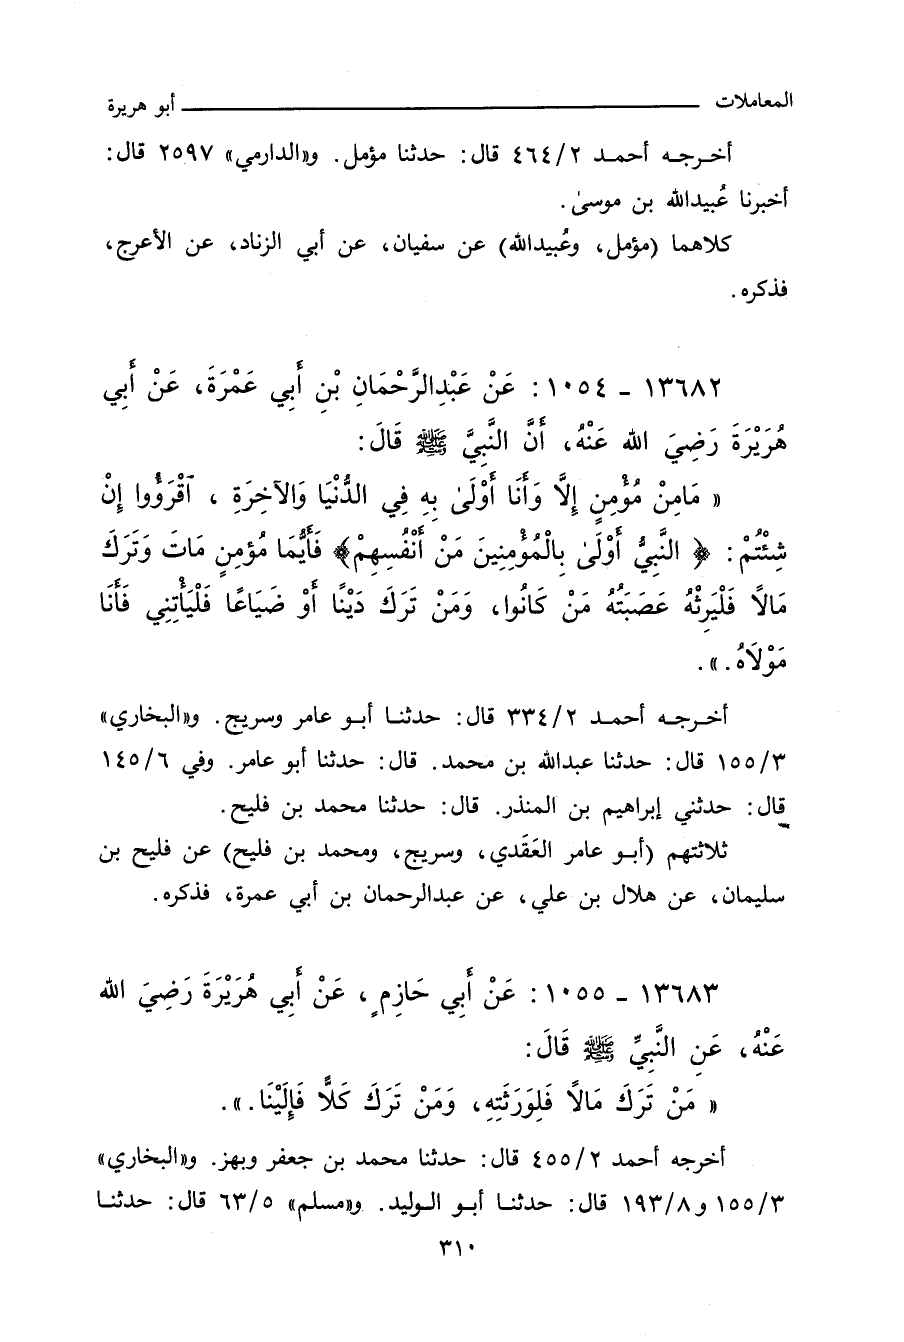 المعاملات ــــــــــــــــــــــــــــــــ أبو هريرة
أخرجه أحمد ٤٦٤/٢ قال: حدثنا مؤمل. و«الدارمي» ٢٥٩٧ قال:
أخبرنا عُبيدالله بن موسىٰ.
كلاهما (مؤمل، وعُبيدالله) عن سفيان، عن أبي الزناد، عن الأعرج،
فذكره.
١٣٦٨٢ - ١٠٥٤: عَنْ عَبْدِالرَّحْمَانِ بْنِ أَبِي عَمْرَةَ، عَنْ أَبِي
هُرَيْرَةَ رَضِيَ الله عَنْهُ، أَنَّ النَّبِيَّ ﷺ قَالَ:
« مَامِنْ مُؤْمِنٍ إِلَّا وَأَنَا أَوْلَىٰ بِهِ فِي الدُّنْيَا وَالآخِرَةِ، ٱقْرَؤُوا إِنْ
شِئْتُمْ: ﴿ النَّبِيُّ أَوْلَىٰ بِالْمُؤْمِنِينَ مَنْ أَنْفُسِهِمْ﴾ فَأَيُّمَا مُؤْمِنٍ مَاتَ وَتَرَكَ
مَالًا فَلْيَرِثْهُ عَصَبَتُهُ مَنْ كَانُوا، وَمَنْ تَرَكَ دَيْنًا أَوْ ضَيَاعًا فَلْيَأْتِنِي فَأَنَا
مَوْلَاهُ.».
أخرجه أحمد ٣٣٤/٢ قال: حدثنا أبو عامر وسريج. و«البخاري»
١٥٥/٣ قال: حدثنا عبدالله بن محمد. قال: حدثنا أبو عامر. وفي ١٤٥/٦
قال: حدثني إبراهيم بن المنذر. قال: حدثنا محمد بن فليح.
ثلاثتهم (أبو عامر العَقَدي، وسريج، ومحمد بن فليح) عن فليح بن
سليمان، عن هلال بن علي، عن عبدالرحمان بن أبي عمرة، فذكره.
١٣٦٨٣ - ١٠٥٥: عَنْ أَبِي حَازِمٍ، عَنْ أَبِي هُرَيْرَةَ رَضِيَ الله
عَنْهُ، عَنِ النَّبِيِّ ﷺ قَالَ:
« مَنْ تَرَكَ مَالًا فَلِوَرَثَتِهِ، وَمَنْ تَرَكَ كَلًّا فَإِلَيْنَا.».
أخرجه أحمد ٤٥٥/٢ قال: حدثنا محمد بن جعفر وبهز. و«البخاري»
١٥٥/٣ و١٩٣/٨ قال: حدثنا أبو الوليد. و«مسلم» ٦٣/٥ قال: حدثنا
٣١٠